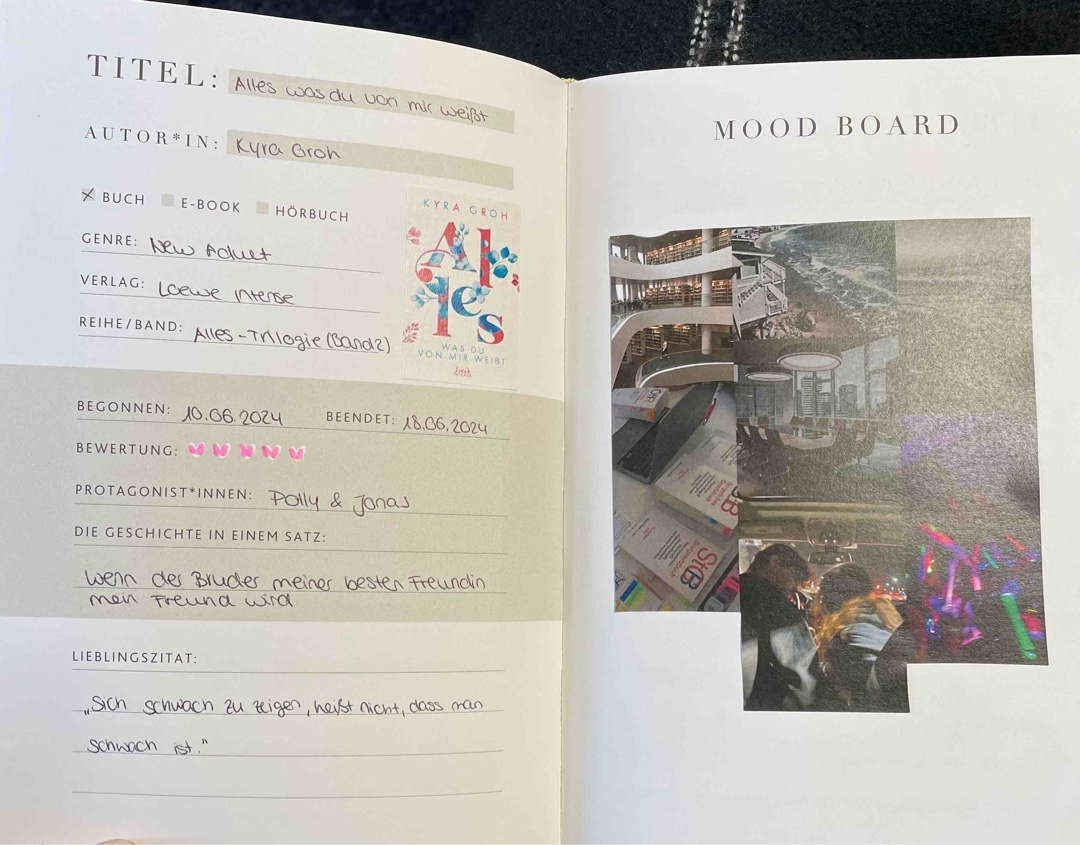 TITEL: Alles was du von mir weißt
AUTOR*IN: Kyra Groh
BUCH E-BOOK HÖRBUCH
GENRE: New Adult
VERLAG: Loewe Intense
REIHE/BAND: Alles-Trilogie (Band 2)
KYRA GROH
Alles
WAS DU
VON MIR WEIßT
BEGONNEN: 10.06.2024 BEENDET: 18.06.2024
BEWERTUNG:
PROTAGONIST*INNEN: Polly & Jonas
DIE GESCHICHTE IN EINEM SATZ:
wenn der Bruder meiner besten Freundin
mein Freund wird
LIEBLINGSZITAT:
„Sich schwach zu zeigen, heißt nicht, dass man
schwach ist."
MOOD BOARD
StGB